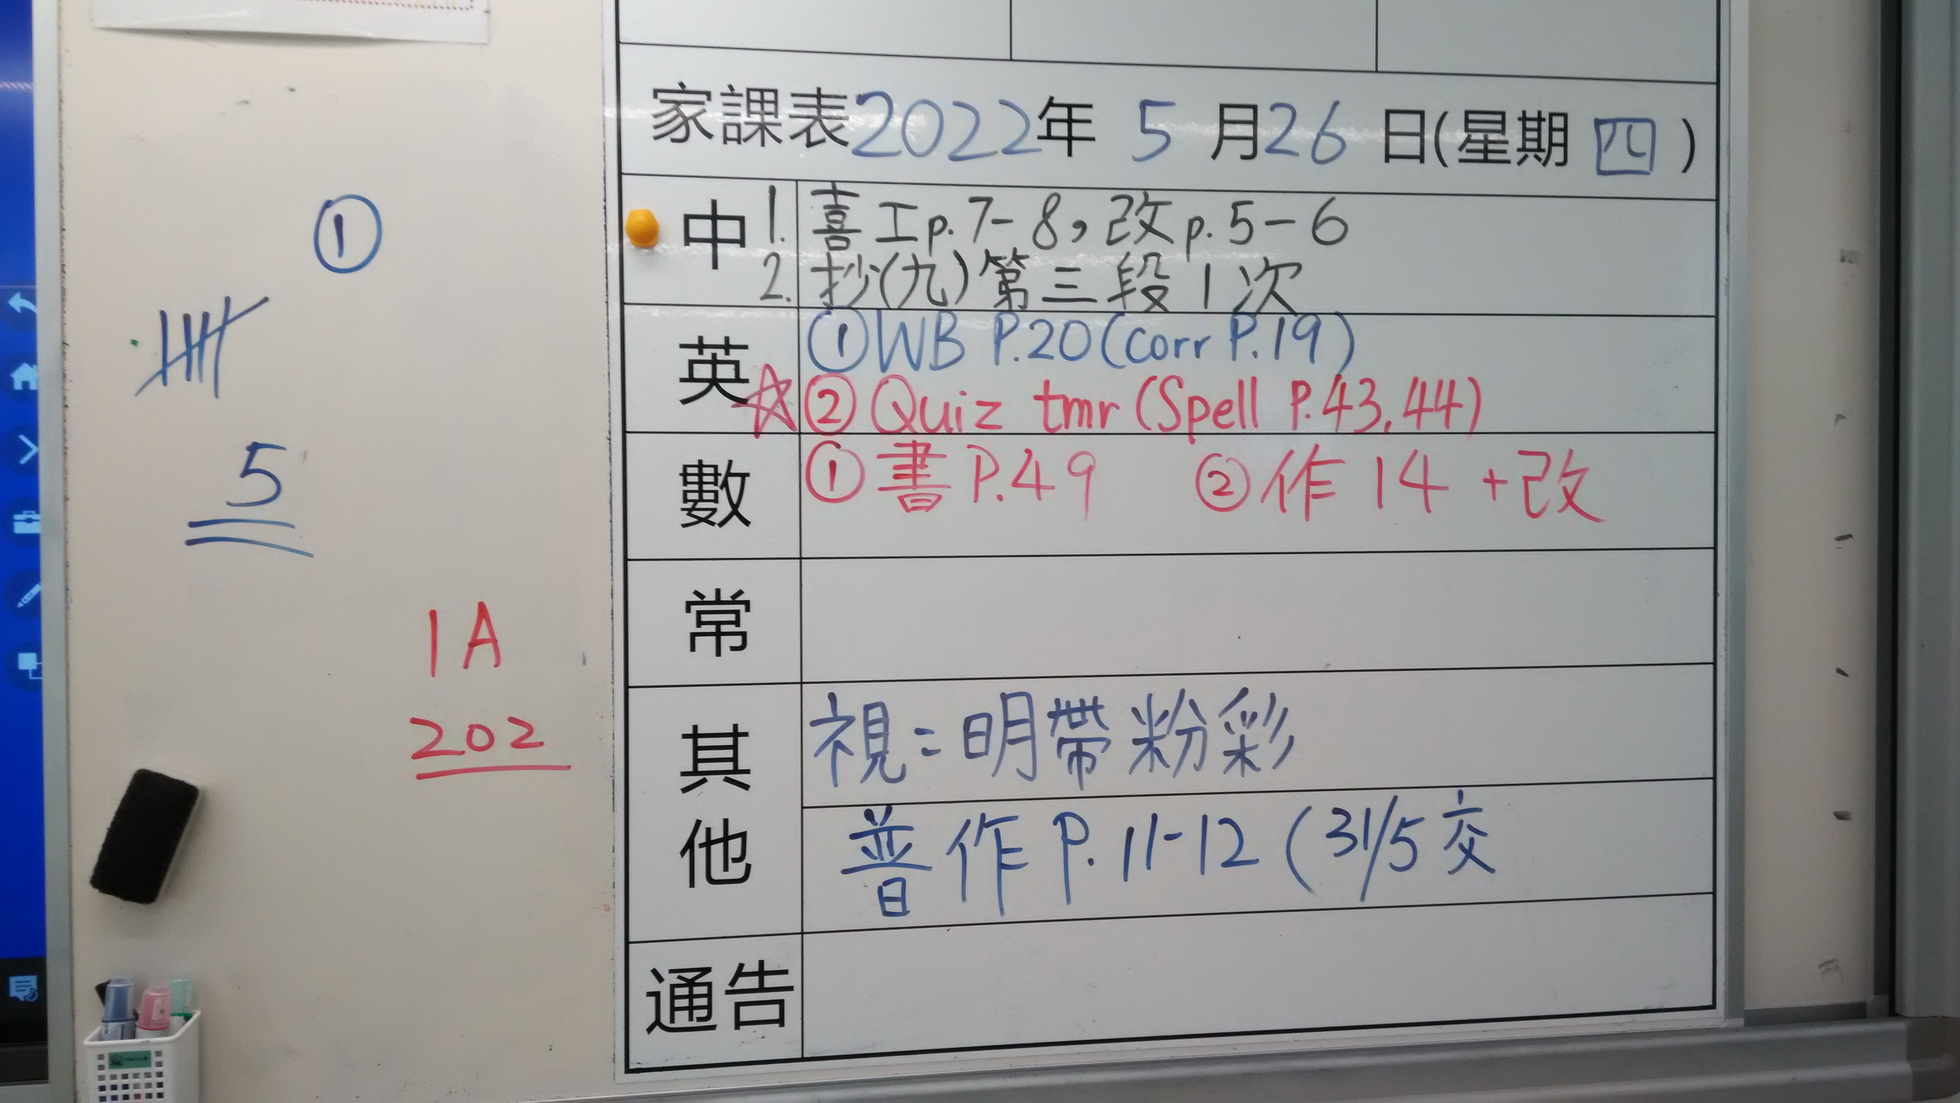 家課表2022年 5 月26 日(星期 四 )
中 1. 喜工p.7-8，改p.5-6
2. 抄(九)第三段1次
英 ①WB P.20(corr P.19)
☆②Quiz tmr (Spell P.43,44)
數 ①書P.49 ②作14 +改
常
其他 視：明帶粉彩
普作P.11-12 (31/5交
通告
①
5
1A
202